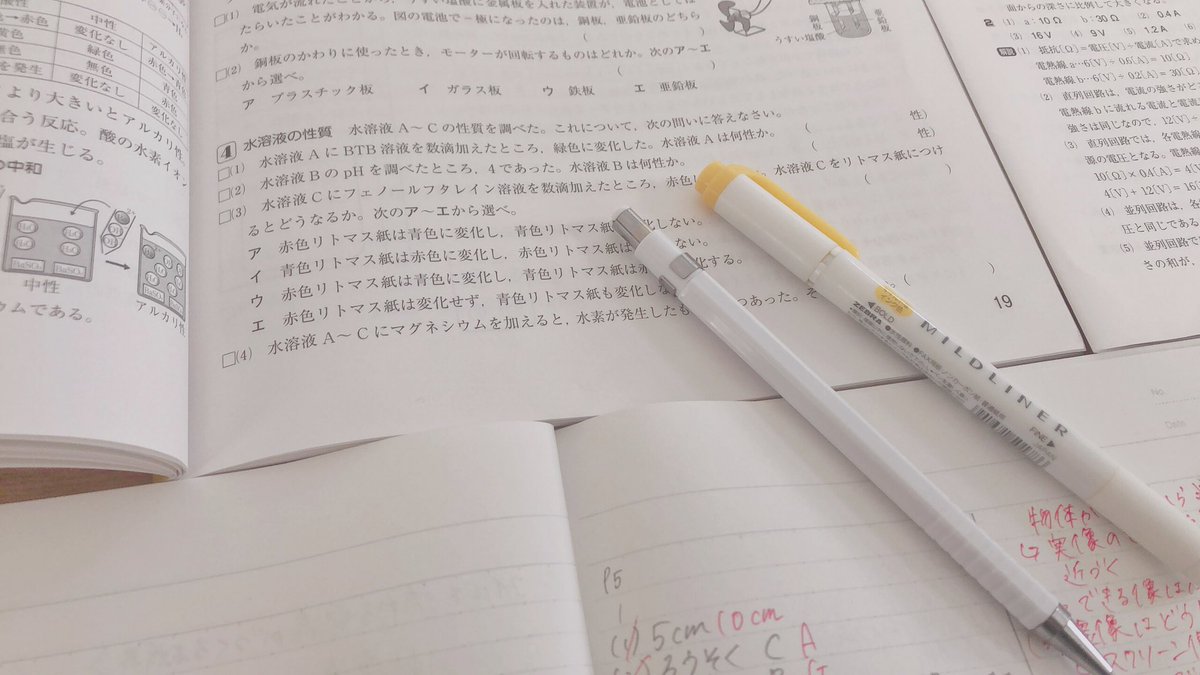 酸性
中性
アルカリ性
変化なし
緑色
無色
変化なし
を発生
より大きいとアルカリ性。
合う反応。酸の水素イオン
塩が生じる。
の中和
BaSO₄
BaSO₄
中性
アルカリ性
ウムである。
□(1)
たらいたことがわかる。図の電池で－極になったのは，銅板，亜鉛板のどちら
か。 ( )
□(2) 銅板のかわりに使ったとき，モーターが回転するものはどれか。次のア～エ
から選べ。 ( )
ア プラスチック板 イ ガラス板 ウ 鉄板 エ 亜鉛板
銅板
亜鉛板
うすい塩酸
4 水溶液の性質 水溶液A～Cの性質を調べた。これについて，次の問いに答えなさい。
□(1) 水溶液AにBTB溶液を数滴加えたところ，緑色に変化した。水溶液Aは何性か。 ( 性)
□(2) 水溶液BのpHを調べたところ，4であった。水溶液Bは何性か。 ( 性)
□(3) 水溶液Cにフェノールフタレイン溶液を数滴加えたところ，赤色 。水溶液Cをリトマス紙につけ
るとどうなるか。次のア～エから選べ。 ( )
ア 赤色リトマス紙は青色に変化し，青色リトマス紙 しない。
イ 青色リトマス紙は赤色に変化し，赤色リトマス ない。
ウ 赤色リトマス紙は青色に変化し，青色リトマス紙は赤 化する。
エ 赤色リトマス紙は変化せず，青色リトマス紙も変化しな
□(4) 水溶液A～Cにマグネシウムを加えると，水素が発生したも つあった。そ ( )
19
面からの深さに比例して大きくなる。
2 (1) a：10Ω b：30Ω (2) 0.4A
(3) 16V (4) 9V (5) 1.2A
(1) 抵抗〔Ω〕＝電圧〔V〕÷電流〔A〕で求め
電熱線a…6〔V〕÷0.6〔A〕＝10〔Ω〕
電熱線b…6〔V〕÷0.2〔A〕＝30〔Ω〕
(2) 直列回路は，電流の強さがど
電熱線bに流れる電流と電流
強さは同じなので，12〔V〕÷
(3) 直列回路では，各
源の電圧となる。電熱
10〔Ω〕×0.4〔A〕＝4〔
4〔V〕＋12〔V〕＝16
(4) 並列回路は，各
圧と同じである
(5) 並列回路で
さの和が，
BOLD
ZEBRA
MILDLINER
FINE
No.
Date
P5
1
(1) 5cm 10cm
ろうそく C A
物体が
↳ 実像の
近づく
できる像は
像はどう
スクリーン